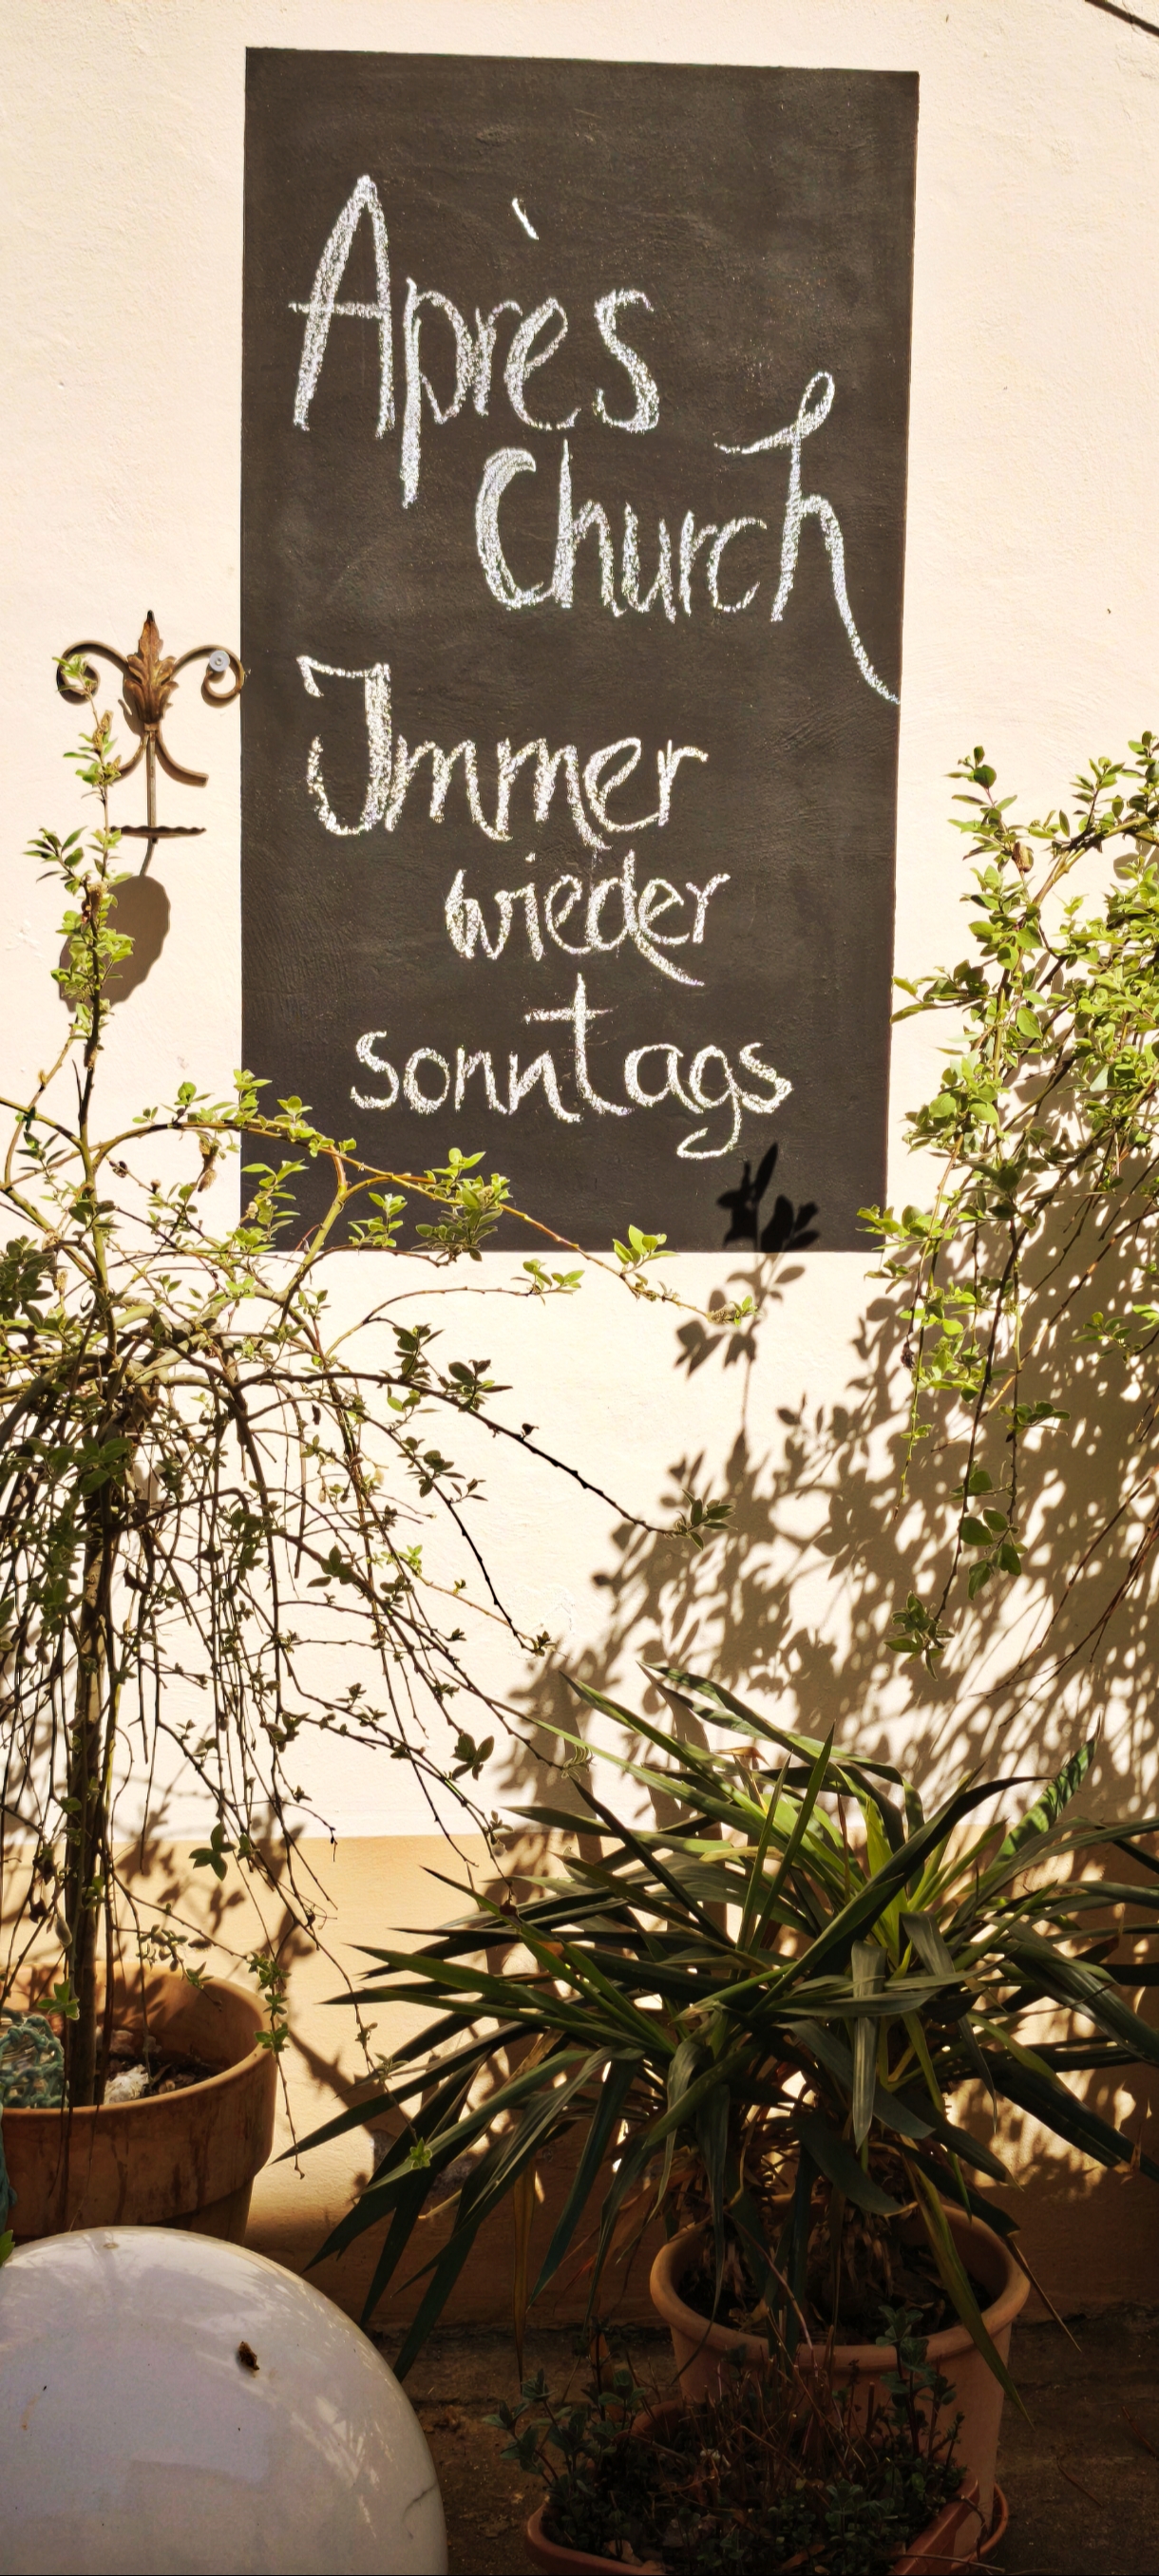 Après
Church
Immer
wieder
sonntags